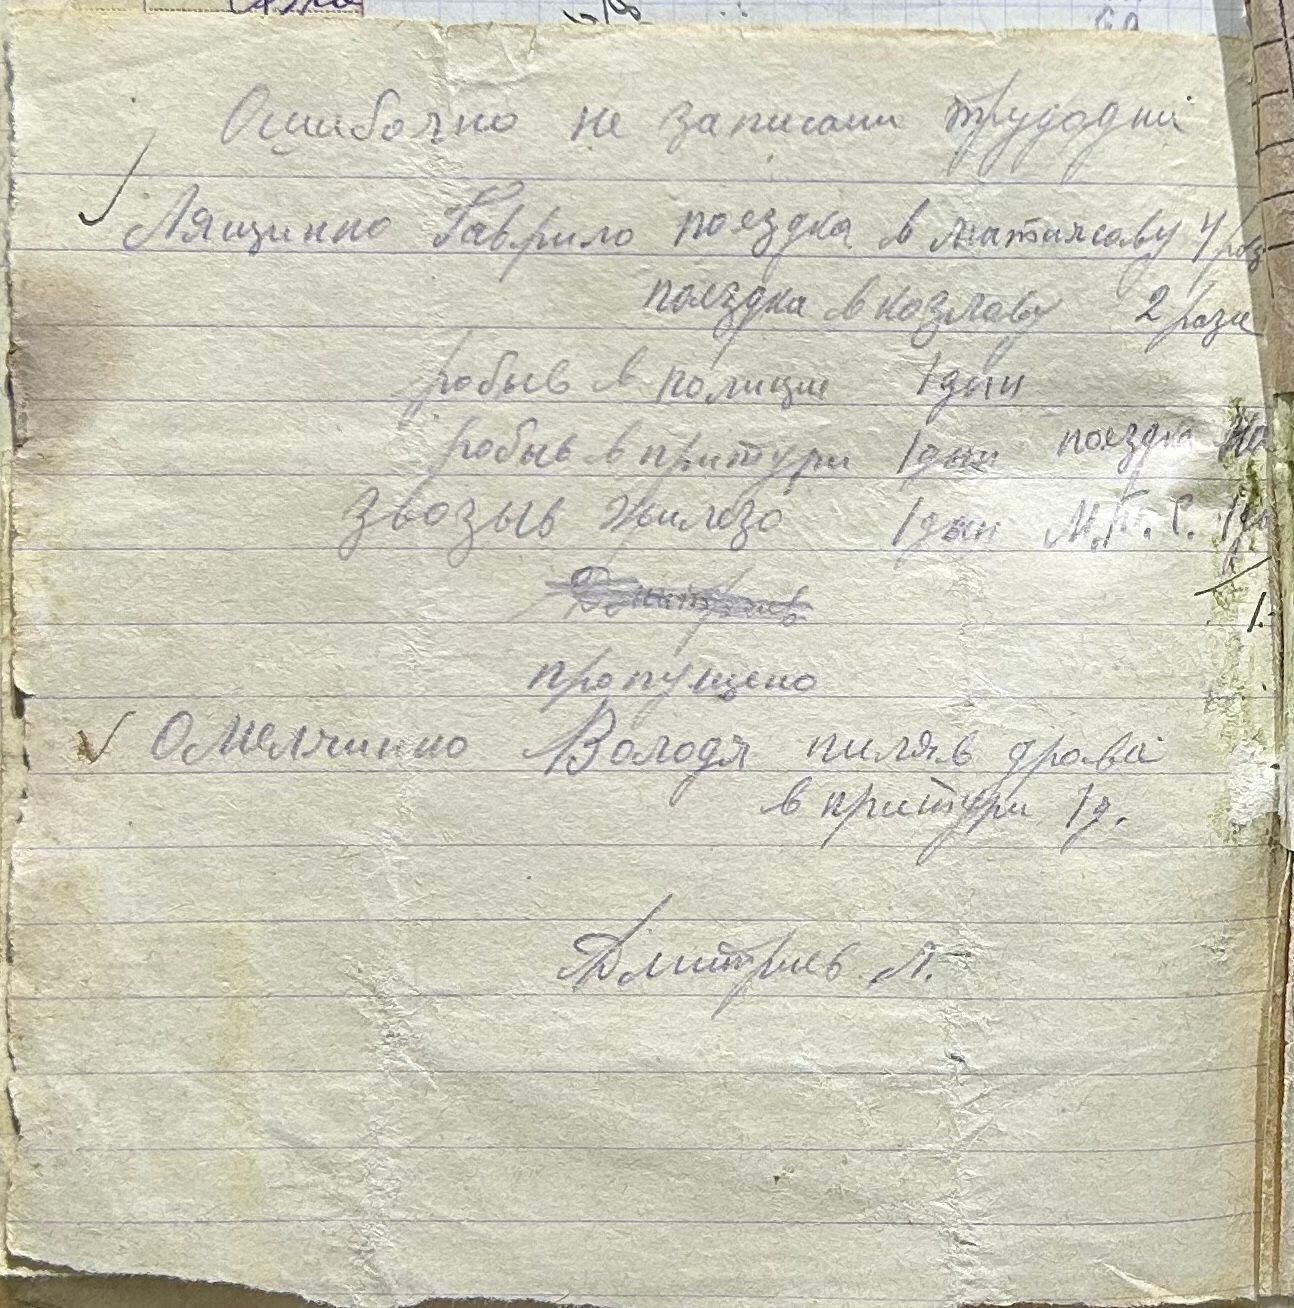 Ошибочно не записани трудодни
Лящинко Гаврило поездка в 4 раз
поездка в козлову 2 раза
робыв в полиции 1 дын
робыв в притури 1 дын поездка на
звозыв жилезо 1 дын М.Т.С. 1 ды
1.-
пропущено
Омелчинко Володя пиляв дрова
в притури 1 д.
Дмитриев Л.